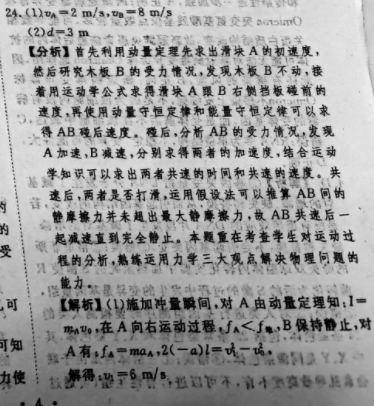 24.(1)v_A=2 m/s,v_B=8 m/s
(2)d=3 m
【分析】首先利用动量定理先求出滑块 A 的初速度,
然后研究木板 B 的受力情况,发现木板 B 不动,接
着用运动学公式求得滑块 A 跟 B 右侧挡板碰前的
速度,再使用动量守恒定律和能量守恒定律可以求
得 AB 碰后速度。碰后,分析 AB 的受力情况,发现
A 加速,B 减速,分别求得两者的加速度,结合运动
学知识可以求出两者共速的时间和共速的速度。共
速后,两者是否打滑,运用假设法可以推算 AB 间的
静摩擦力并未超出最大静摩擦力,故 AB 共速后一
起减速直到完全静止。本题重在考查学生对运动过
程的分析,熟练运用力学三大观点解决物理问题的
能力.
【解析】(1)施加冲量瞬间,对 A 由动量定理知:I=
m_Av_0,在 A 向右运动过程,f_A<f_B,B 保持静止,对
A 有:f_A=ma_A,2(-a)l=v_1^2-v_0^2,
解得:v_1=6 m/s
的
的
受
可
可知
力使
· 4 ·